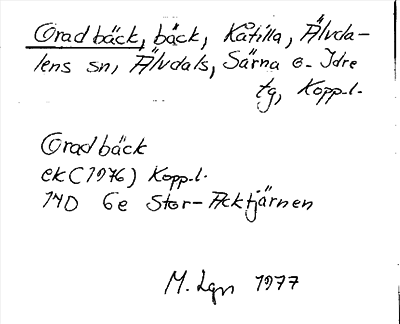 Oradbäck, bäck, Kåtilla, Älvda-
lens sn, Älvdals, Särna o. Idre
tg, Kopp.l.
Oradbäck
ek (1976) Kopp.l.
14D 6e Stor-Acktjärnen
M. Lgn 1977